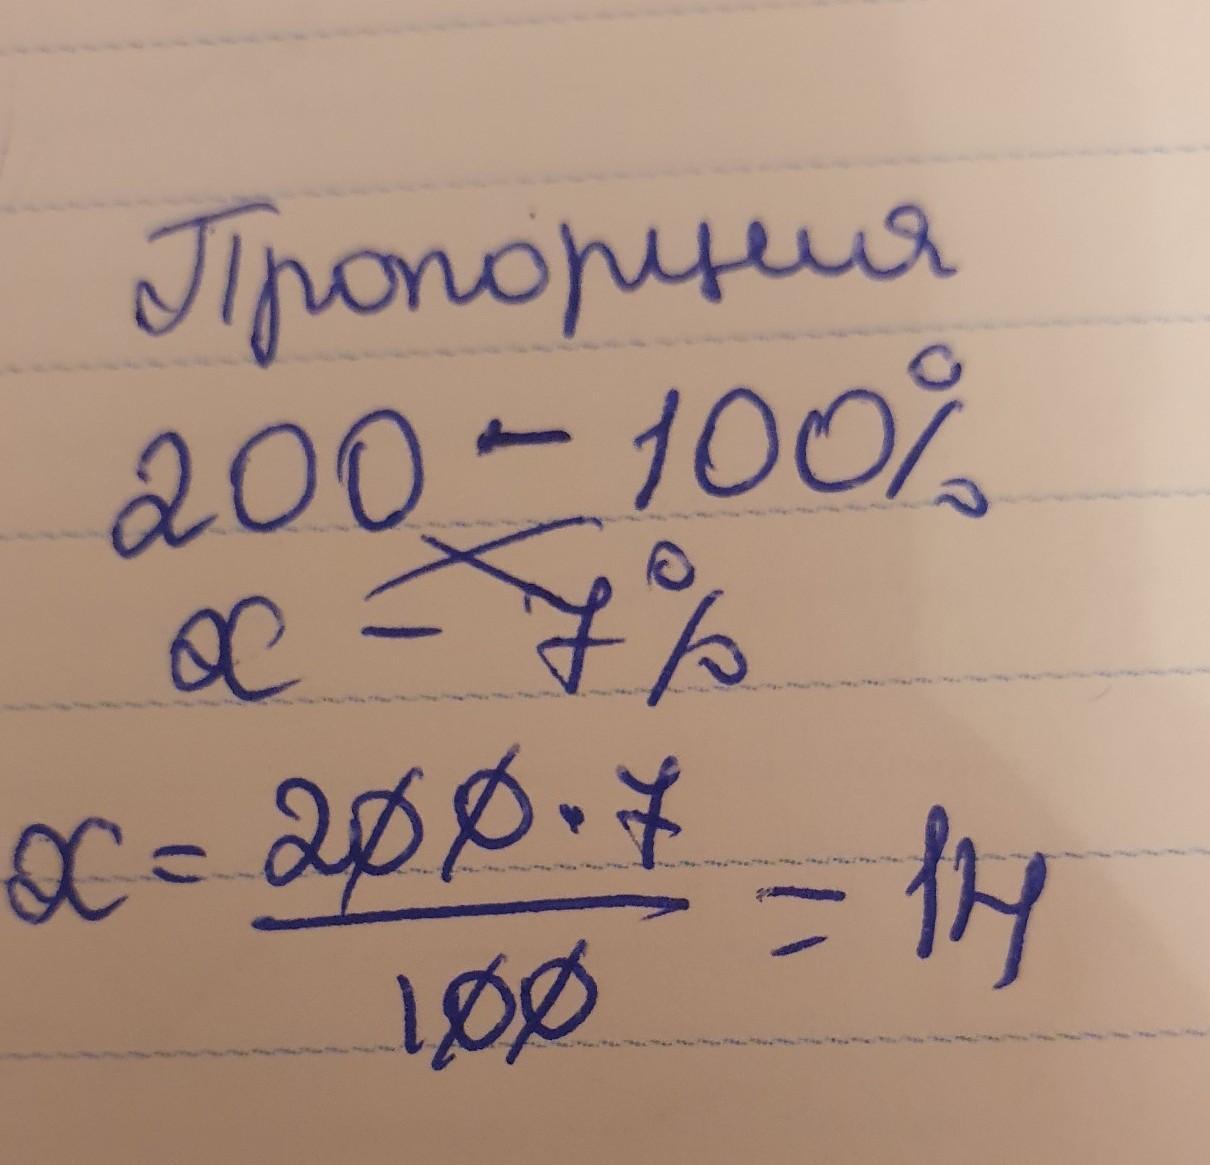 Пропорция
200 - 100%
x - 7%
x = 200 · 7 / 100 = 14